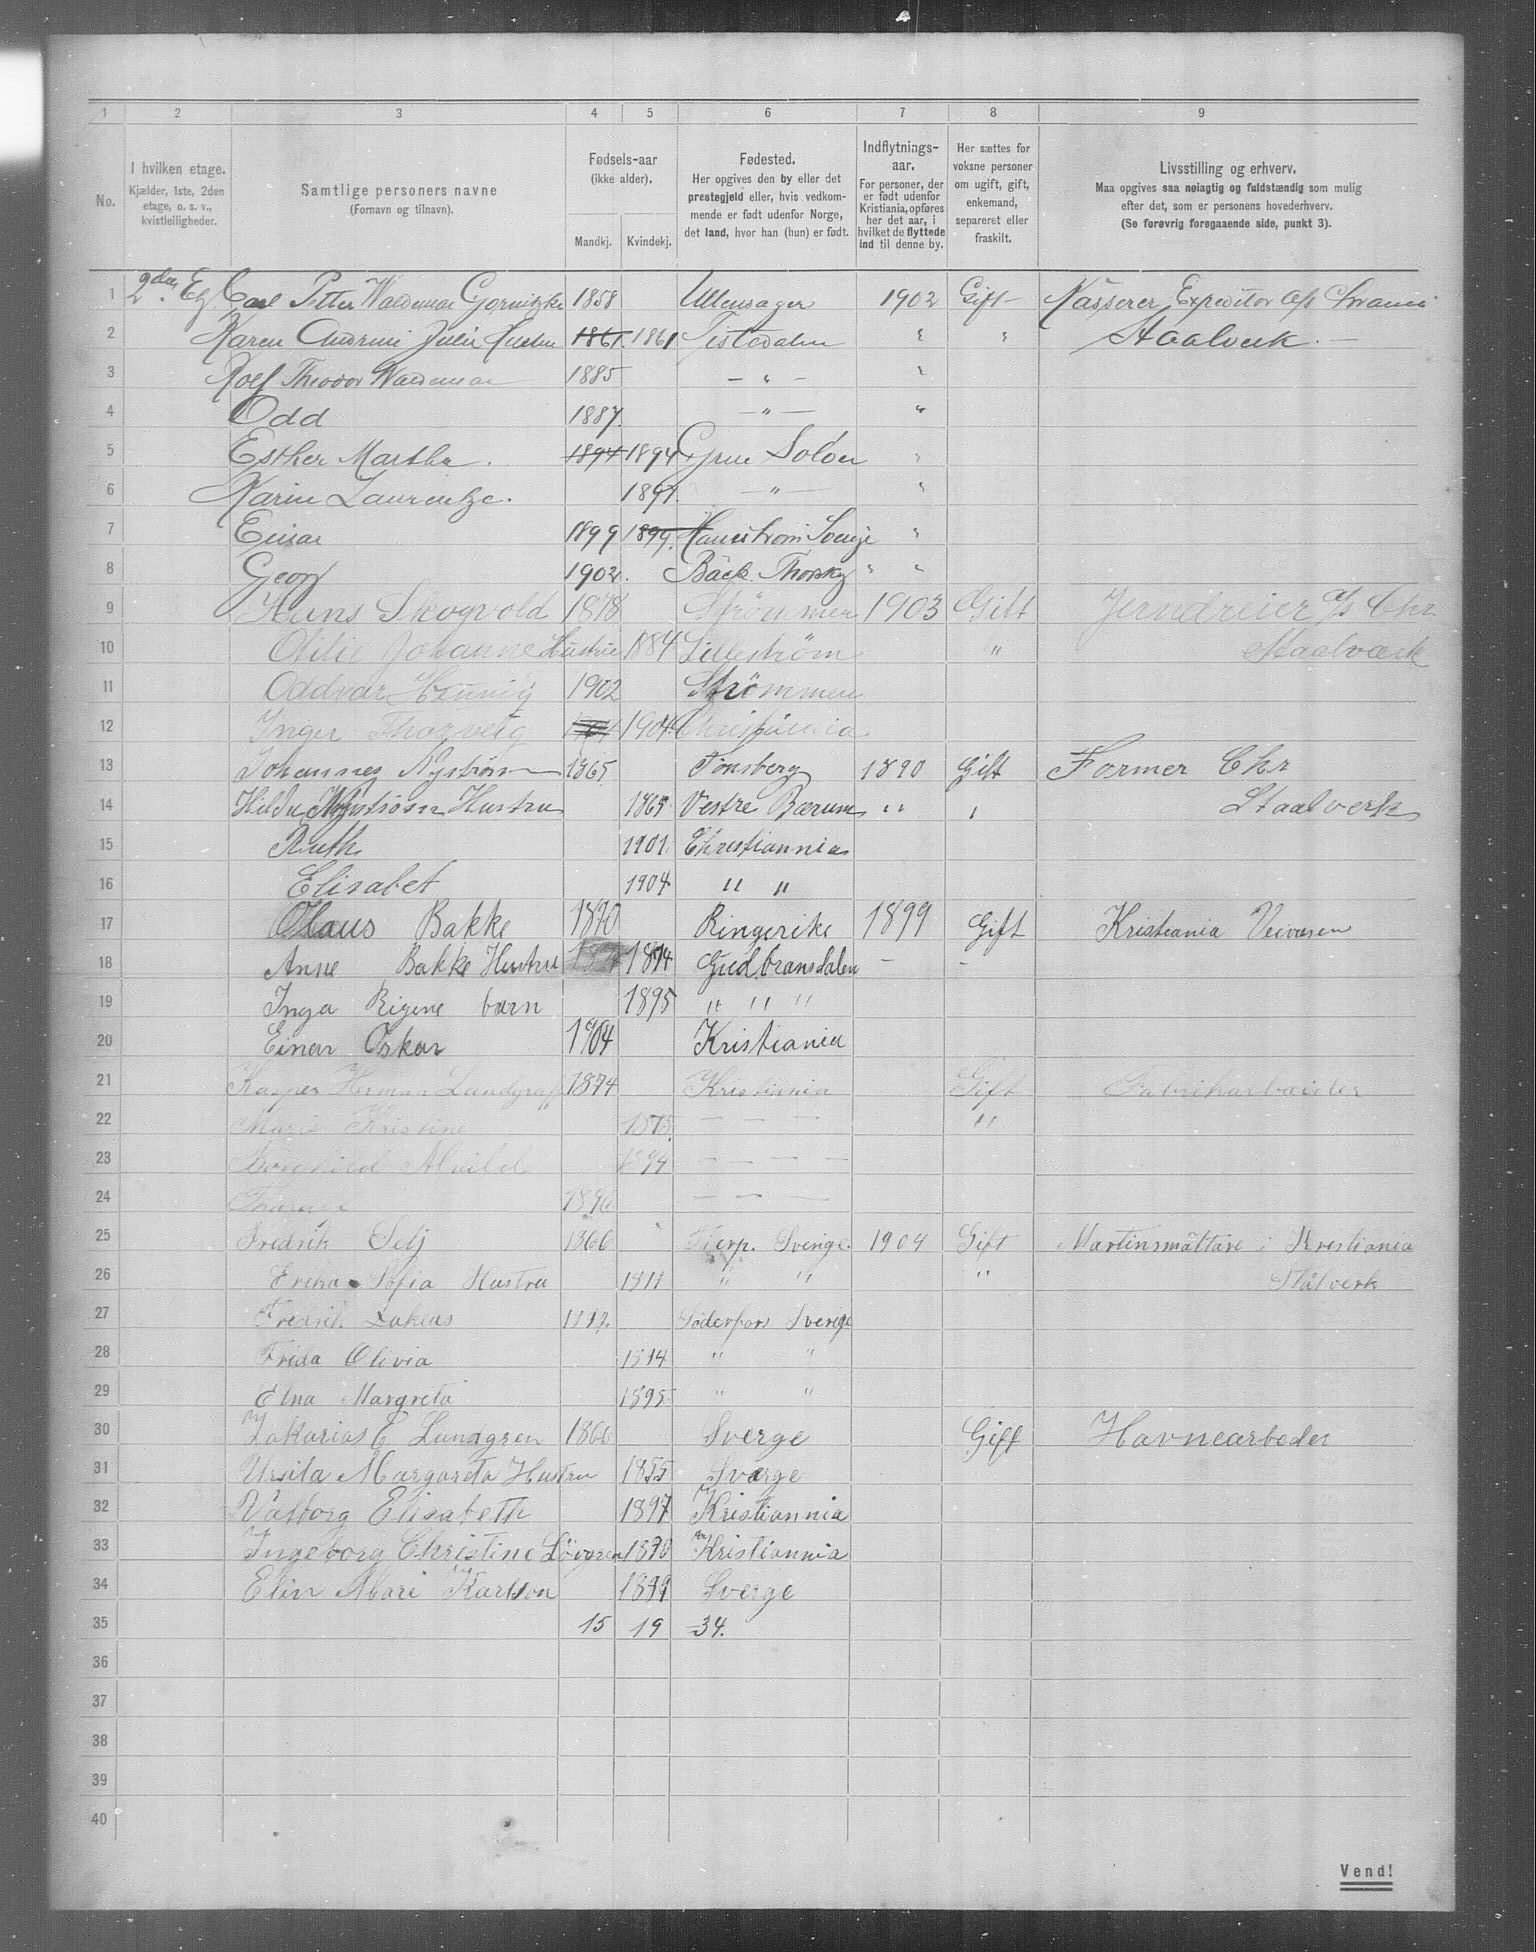 1 2 3 4 5 6 7 8 9
No.
I hvilken etage.
Kjælder, 1ste, 2den
etage, o. s. v.,
kvistleiligheder.
Samtlige personers navne
(Fornavn og tilnavn).
Fødsels-aar
(ikke alder).
Mandkj. Kvindekj.
Fødested.
Her opgives den by eller det
prestegjeld eller, hvis vedkom-
mende er født udenfor Norge,
det land, hvor han (hun) er født.
Indflytnings-
aar.
For personer, der
er født udenfor
Kristiania, opføres
her det aar, i
hvilket de flyttede
ind til denne by.
Her sættes for
voksne personer
om ugift, gift,
enkemand,
separeret eller
fraskilt.
Livsstilling og erhverv.
Maa opgives saa nøiagtig og fuldstændig som mulig
efter det, som er personens hovederhverv.
(Se forøvrig foregaaende side, punkt 3).
1 2den Etg Carl Petter Waldemar Gornitzke 1858 Ullensager 1902 Gift Kasserer, Expeditør
2 Karen Andrine Julie 1861. 1861 Tistedalen " " Staalverk. —
3 Rolf Theodor Waldemar 1885 — " — "
4 Odd 1887. — " — "
5 Esther Martha. 1894 1894 Grue Solør "
6 Karin Laurentze. 1897. — " — "
7 Einar 1899 1899. Sverige "
8 Georg 1902. Bäck Thorsky " "
9 Hans Skogvold 1878 Strømmen 1903 Gift Jerndreier A/S Chr.
10 Otilie Johanne Hustru 1884 Lillestrøm " Staalværk
11 Oddvar Henning 1902 Strømmen
12 Inger Thorveig 1904 1904 Christiania
13 Johannes Nystrøm 1865 Tønsberg 1890 Gift Former Chr
14 Hilda Nystrøm Hustru 1865 Vestre Bærum " " Staalverk
15 Ruth 1901 Christiannia
16 Elisabet 1904 " "
17 Olaus Bakke 1870 Ringerike 1899 Gift Kristiania Veivæsen
18 Anne Bakke Hustru 1874 Gudbransdalen — —
19 Inga Rigene barn 1895 " " "
20 Einar Oskar 1904 Kristiania
21 Kasper Herman Lundgraff 1874 Kristiania Gift Fabrikarbeider
22 Marie Kristine 1875 — — — "
23 Borghild Alvilde 1894 — — — —
24 1896 — — —
25 Fredrik Selj 1860 Sverige. 1904 Gift Martinsmältare i Kristiania
26 Erika Sofia Hustru " " " Stålverk
27 Fredrik Söderfors Sverige
28 Frida Olivia 1894 " "
29 Elna Margreta 1895 " "
30 Zakarias E Lundgren 1860 Sverge Gift Havnearbeder
31 Ursila Margareta Hustru 1855 Sverge
32 Valborg Elisabeth 1897 Kristiannia
33 Ingeborg Christine Lövgren 1890 Kristiannia
34 Elin Mari Karlson 1899 Sverge
35 15 19 34.
36
37
38
39
40
Vend!